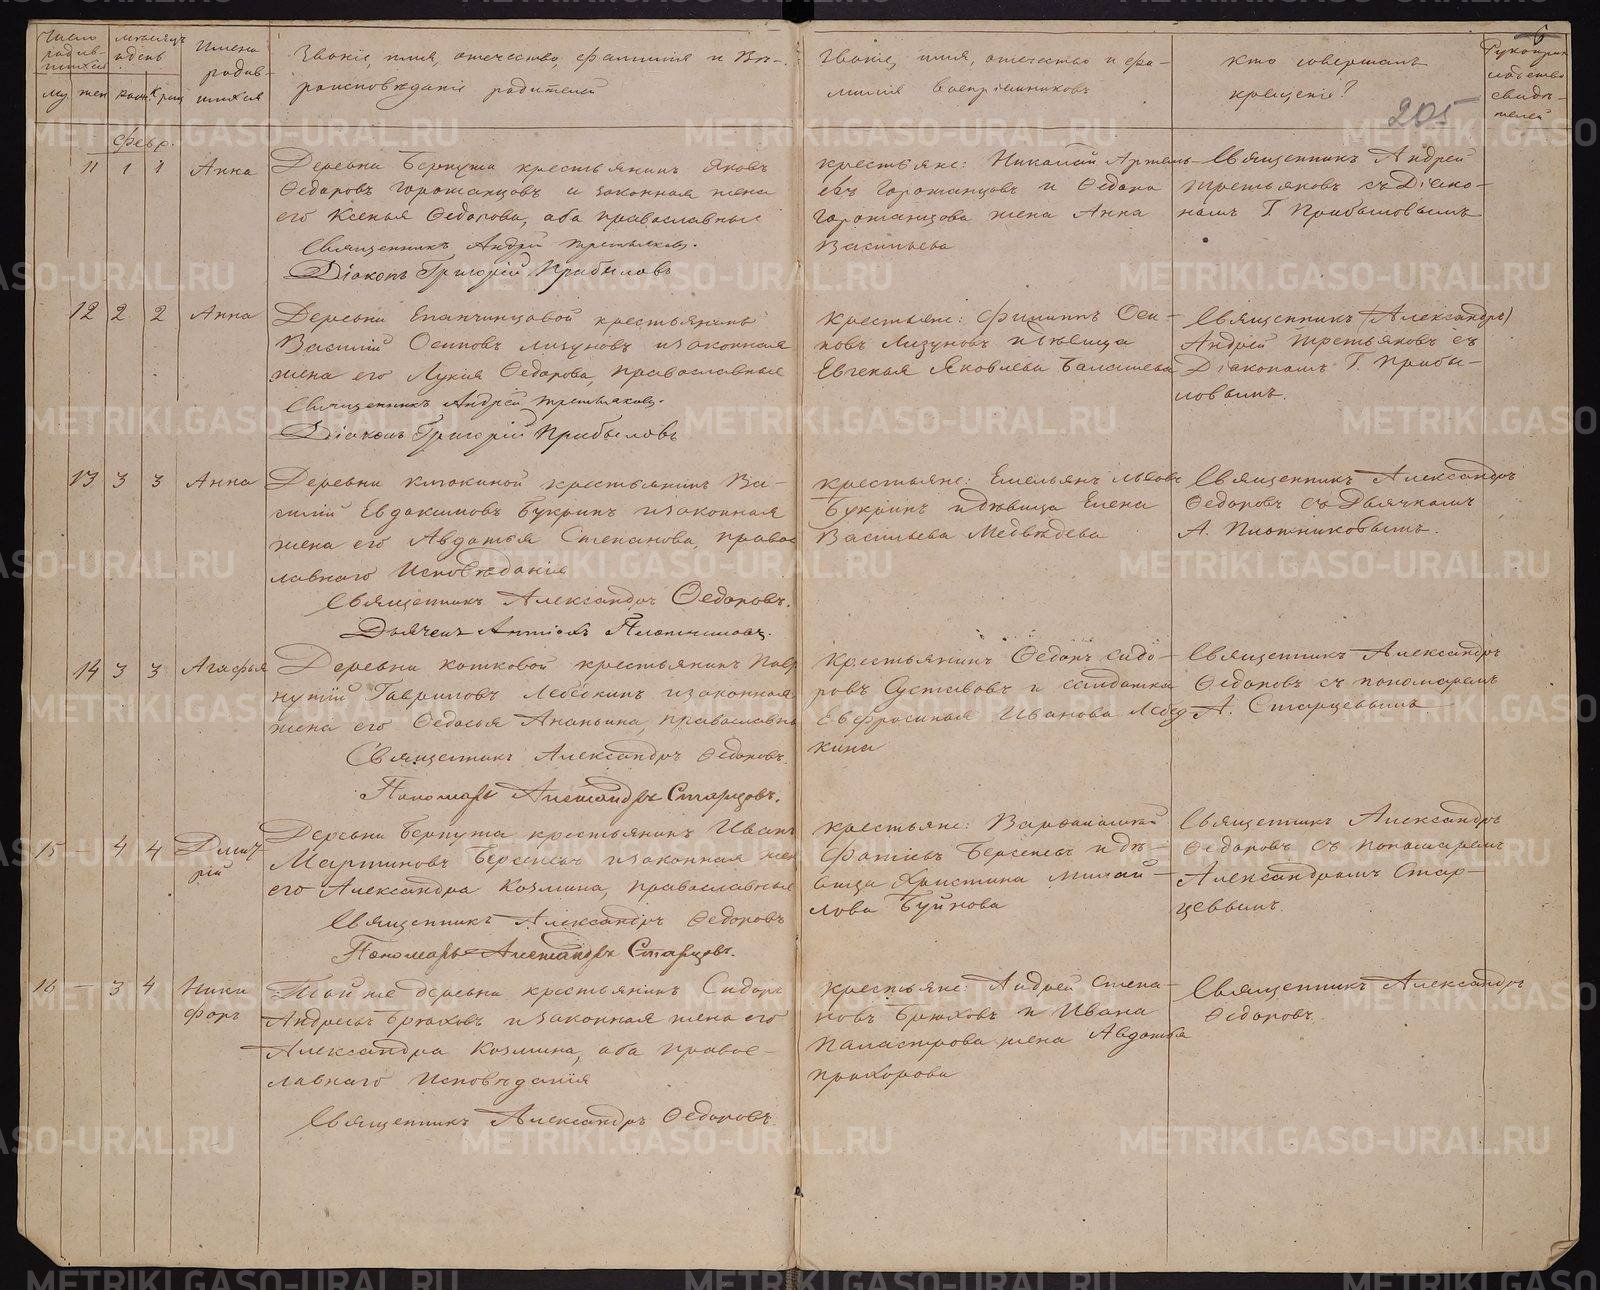 Число родив- шихся
му жен
месяцъ и день
рожд. крещ
Имена родив- шихся
Званіе, имя, отечество, фамилія и Вѣ-
роисповѣданіе родителей
Званіе, имя, отечество и фа-
милія воспріемниковъ
Кто совершалъ
крещеніе?
Рукоприк
ладство
свидѣ-
телей
6
205
Февр.
11 1 1 Анна
Деревни Берпуша крестьянинъ Яковъ
Ѳедоровъ Горожанцовъ и законная жена
его Ксенья Ѳедорова, оба православные
Священникъ Андрей Третьяковъ.
Діаконъ Григорій Прибыловъ
крестьяне: Николай Артемь-
евъ Горожанцовъ и Ѳедора
Горожанцова жена Анна
Васильева
Священникъ Андрей
Третьяковъ съ Діако-
номъ Г. Прибыловымъ
12 2 2 Анна
Деревни Епанчинцовой крестьянинъ
Василій Осиповъ Лизуновъ и законная
жена его Лукія Ѳедорова, православные
Священникъ Андрей Третьяковъ.
Діаконъ Григорій Прибыловъ
Крестьяне: Филиппъ Оси-
повъ Лизуновъ и дѣвица
Евгенья Яковлева Балашева
Священникъ (Александръ)
Андрей Третьяковъ съ
Діакономъ Г. Прибы-
ловымъ.
13 3 3 Анна
Деревни Клюкиной крестьянинъ Ва-
силій Евдокимовъ Букринъ и законная
жена его Авдотья Степанова, правос
лавнаго Исповѣданія
Священникъ Александръ Ѳедоровъ.
Дьячекъ Плотниковъ.
крестьяне: Емельянъ Львовъ
Букринъ и дѣвица Елена
Васильева Медвѣдева
Священникъ Александръ
Ѳедоровъ съ Дьячкомъ
А. Плотниковымъ.
14 3 3 Агафья
Деревни Кошковой крестьянинъ Паф
нутій Гавриловъ Лебедкинъ и законная
жена его Ѳедосья Ананьина, православны
Священникъ Александръ Ѳедоровъ.
Пономарь Александръ Старцовъ.
Крестьянинъ Ѳедоръ Сидо-
ровъ Суставовъ и солдатка
Евфросинья Иванова Лебед
кина
Священникъ Александръ
Ѳедоровъ съ пономаремъ
А. Старцевымъ
15 – 4 4 Дмит
рій
Деревни Берпуша крестьянинъ Иванъ
Мартиновъ Берсеневъ и законная жен
его Александра Козмина, православные
Священникъ Александръ Ѳедоровъ
Пономарь Александръ Старцовъ.
крестьяне: Варѳоломей
Фотіевъ Берсеневъ и дѣ-
вица Христина Михай-
лова Буйнова
Священникъ Александръ
Ѳедоровъ съ Пономаремъ
Александромъ Стар-
цевымъ.
16 – 3 4 Ники
форъ
Той же деревни крестьянинъ Сидоръ
Андреевъ Брюховъ и законная жена его
Александра Козмина, оба правос-
лавнаго Исповѣданія
Священникъ Александръ Ѳедоровъ.
крестьяне: Андрей Степа-
новъ Брюховъ и Ивана
Паластрова жена Авдотья
Прохорова
Священникъ Александръ
Ѳедоровъ.
METRIKI.GASO-URAL.RU